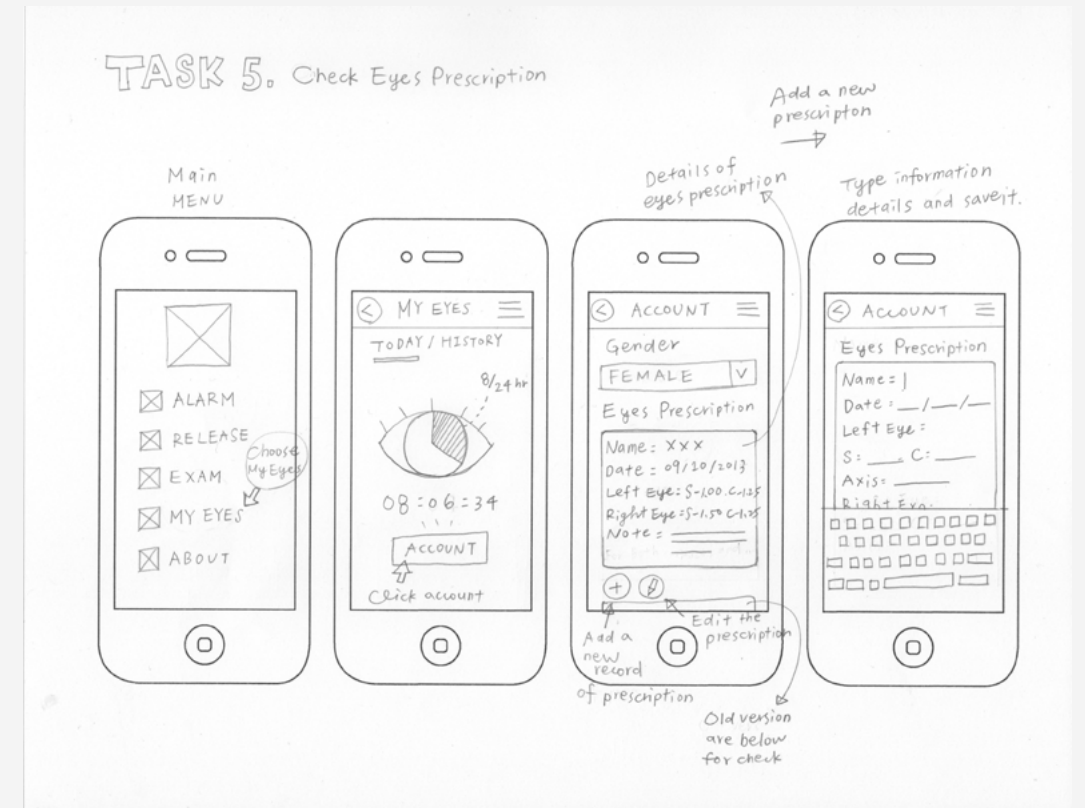 TASK 5. Check Eyes Prescription
Add a new
prescripton
Main
MENU
ALARM
RELEASE
EXAM
MY EYES
ABOUT
Choose
My Eyes
MY EYES
TODAY / HISTORY
8/24 hr
08:06:34
ACCOUNT
Click account
Details of
eyes prescription
ACCOUNT
Gender
FEMALE V
Eyes Prescription
Name: XXX
Date: 09/20/2013
Left Eye: S-1.00. C-1.25
Right Eye: S-1.50 C-1.25
Note:
+
Add a
new
record
of prescription
Edit the
prescription
Old version
are below
for check
Type information
details and save it.
ACCOUNT
Eyes Prescription
Name:
Date: __/__/__
Left Eye:
S: ____ C: ____
Axis: ____
Right